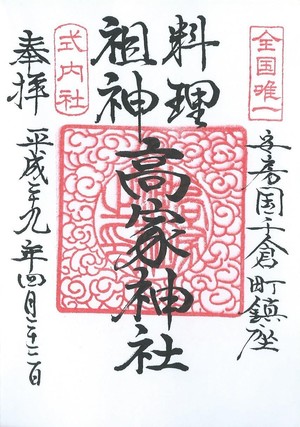 全国唯一
安房国千倉町鎮座
料理
祖神
高家神社
式内社
奉拝
平成二十九年四月二十二日